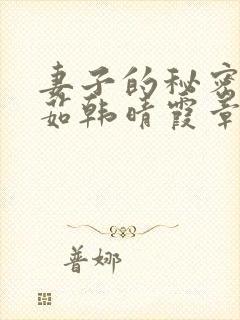 妻子的秘密
茹韩晴霞章
普娜